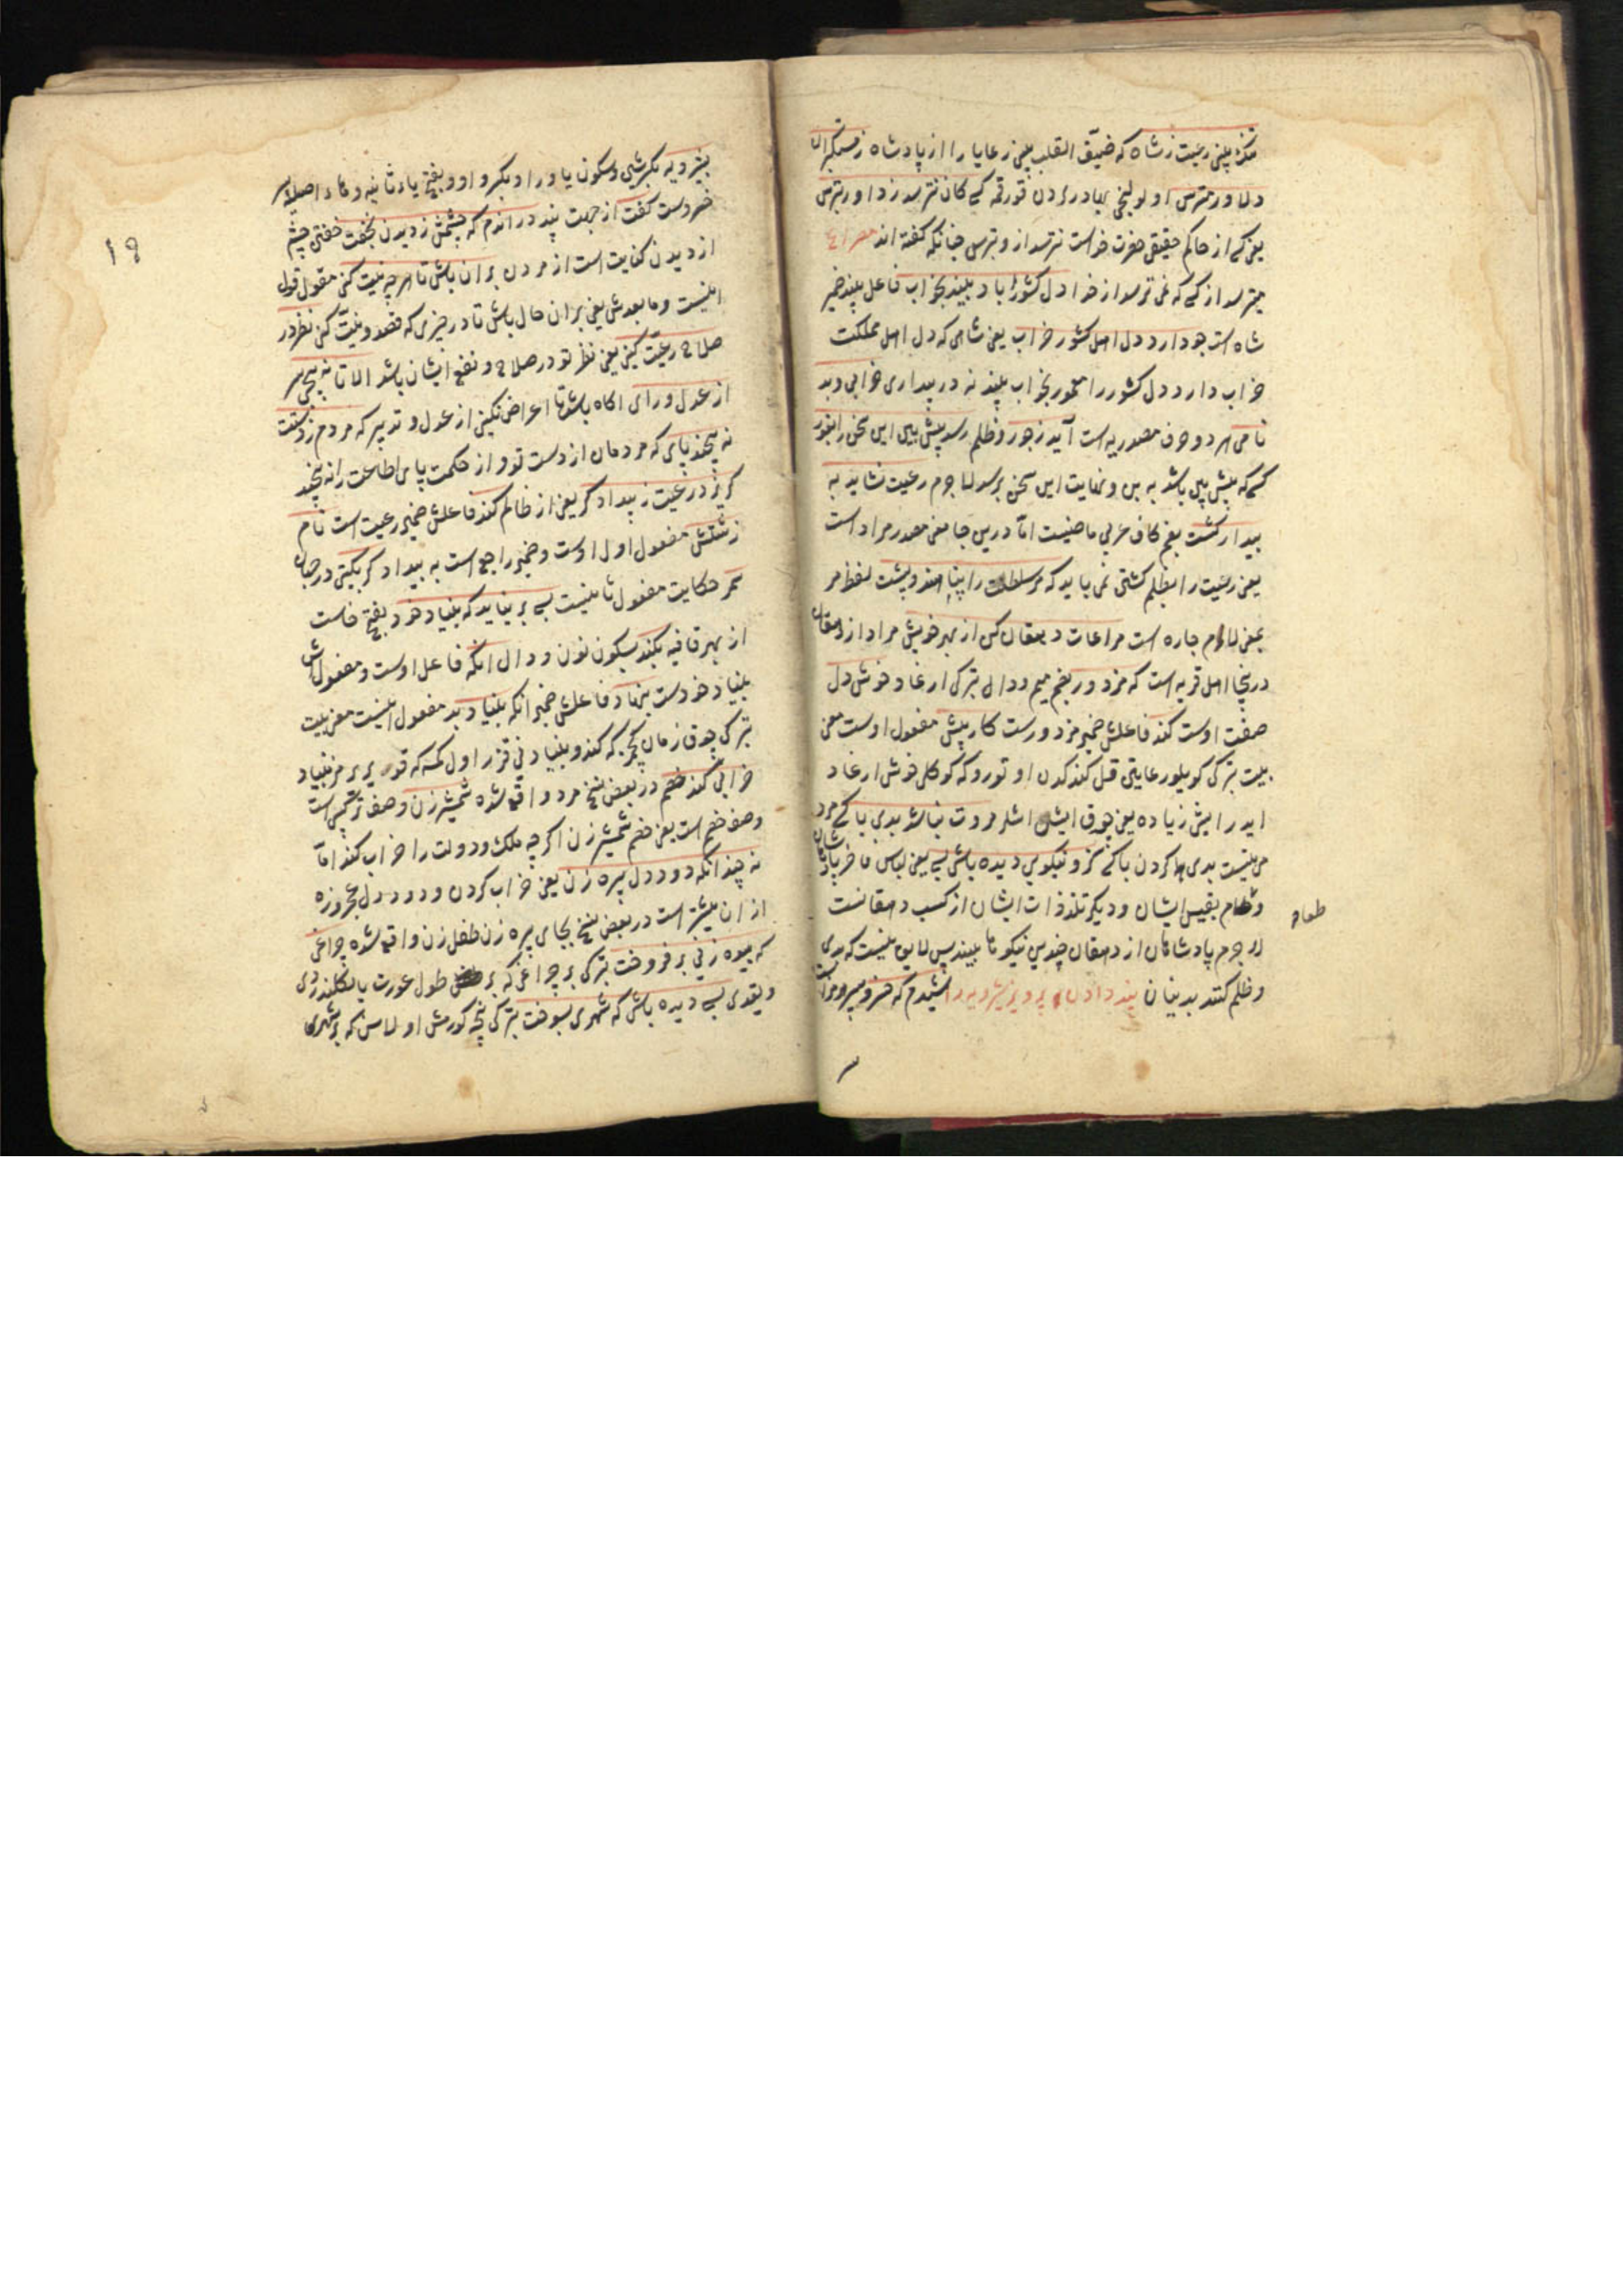 مکن بلنی رعیت ز شاه که ضیق القلب بلنی رعایا را از پادشاه ز مستکبران
دلاور مترس اولو بهادرلردن قورقمه کسی کان نترسد ز داور بترس
یعنی کسی از حاکم حقیقی حضرت خداست نترسد از و بترس چنانکه گفته اند مصراع
میترسد از کسی که نمی ترسد از خدا دل کشور آباد بیند بخواب فاعل بیند ضمیر
شاه است جو دارد دل اهل کشور خراب یعنی شاهی که دل اهل مملکت
خراب دارد دل کشور را معمور بخواب بیند نه در بیداری خرابی و بد
نامی هر دو حرف مصدریه است آید ز جور و ظلم رسد پیش بین این سخن را بغور
کسی که پیش بین باشد به بن و نهایت این سخن برسد لاجرم رعیت نشاید به
بیداد کشت بضم کاف عربی ماضیست اما درین جا معنی مصدر مراد است
یعنی رعیت را بظلم کشتن نمی باید که مر سلطنت را پناهند و پشت لفظ مر
بمعنی لام جاره است مراعات دهقان کن از بهر خویش مراد از دهقان
درینجا اهل قریه است که مزدور بضم میم و دال ترکی ارغاد خوش دل
صفت اوست کند فاعلش ضمیر مزدورست کار بیش مفعول اوست معنی
بیت ترکی کویلور عایتی قیل کندکدن اوتورو که کوکلی خوش ارغاد
ایدر ایش زیاده یعنی چوق ایش اشلر مروت نباشد بدی با کسی مرد
می نیست بدی کردن با کسی کزو نیکویی دیده باشی بسی یعنی لباس فاخر پادشاهان
وطعام نفیس ایشان و دیگر تلذذات ایشان از کسب دهقانست
طعام
لاجرم پادشاهان از دهقان چندین نیکویها بینند پس لایق نیست که بدی
وظلم کنند بدینان پند دادن پرویز شیرویه را شنیدم که خسرو بشیرویه گفت
۱۹
بشیرویه بکسر شین و سکون یا و را و بکسر واو و بفتح یاء ثانیه و هاء اصلیه پسر
خسروست گفت از جهت پند در اندم که چشمش ز دیدن بخفت خفتن چشم
از دیدن کنایت است از مردن بران باش تا هر چه نیت کنی مقول قول
اینست و مابعدش یعنی بران حال باش تا در چیزی که قصد و نیت کنی نظر در
صلاح رعیت کنی یعنی نظر تو در صلاح و نفع ایشان باشد الا تا نه پیچی سر
از عدل و رای آگاه باش تا اعراض نکنی از عدل و تدبیر که مردم ز دستت
نه پیچند پای که مردمان از دست تو و از حکمت پای اطاعت را نه پیچند
گریزد رعیت ز بیدادگر یعنی از ظالم کند فاعلش ضمیر رعیت است نام
زشتش مفعول اول اوست و ضمیر راجع است به بیدادگر بگیتی در جهان
سمر حکایت مفعول ثانیست بسی برنیاید که بنیاد خود بفتح خاست
از بهر قافیه بکند بسکون نون و دال آنکه فاعل اوست و مفعولش
بنیاد خودست بنهاد فاعلش ضمیر آنکه بنیاد بد مفعول اینست معنی بیت
ترکی چوق زمان کچمز که کندو بنیادنی قزر اول کمسه که قودی برمز بنیاد
خرابی کند خصم در بعض نسخ مرد واقع شده شمشیرزن وصف ترکیبی است
وصف خصم است یعنی خصم شمشیرزن اگرچه ملک و دولت را خراب کند اما
نه چندانکه دود دل پیره زن یعنی خراب کردن دود دل عجوزه
از ان بیشتر است در بعض نسخ بجای پیره زن طفل زن واقع شده چراغی
که بیوه زنی برفروخت ترکی بر چراغی که بر طول عورت یالکلندردی
ویقدی بسی دیده باشی که شهری بسوخت ترکی نیجه کورمش اولاسن که بر شهری